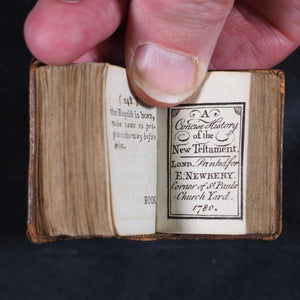 ( 148 )
the Baptist is born,
who came to pre-
pare the way before
him.
BOOK
A
Concise History
of the
New Testament.
LOND. Printed for
E: NEWBERY,
Corner of St. Pauls
Church Yard.
1780.